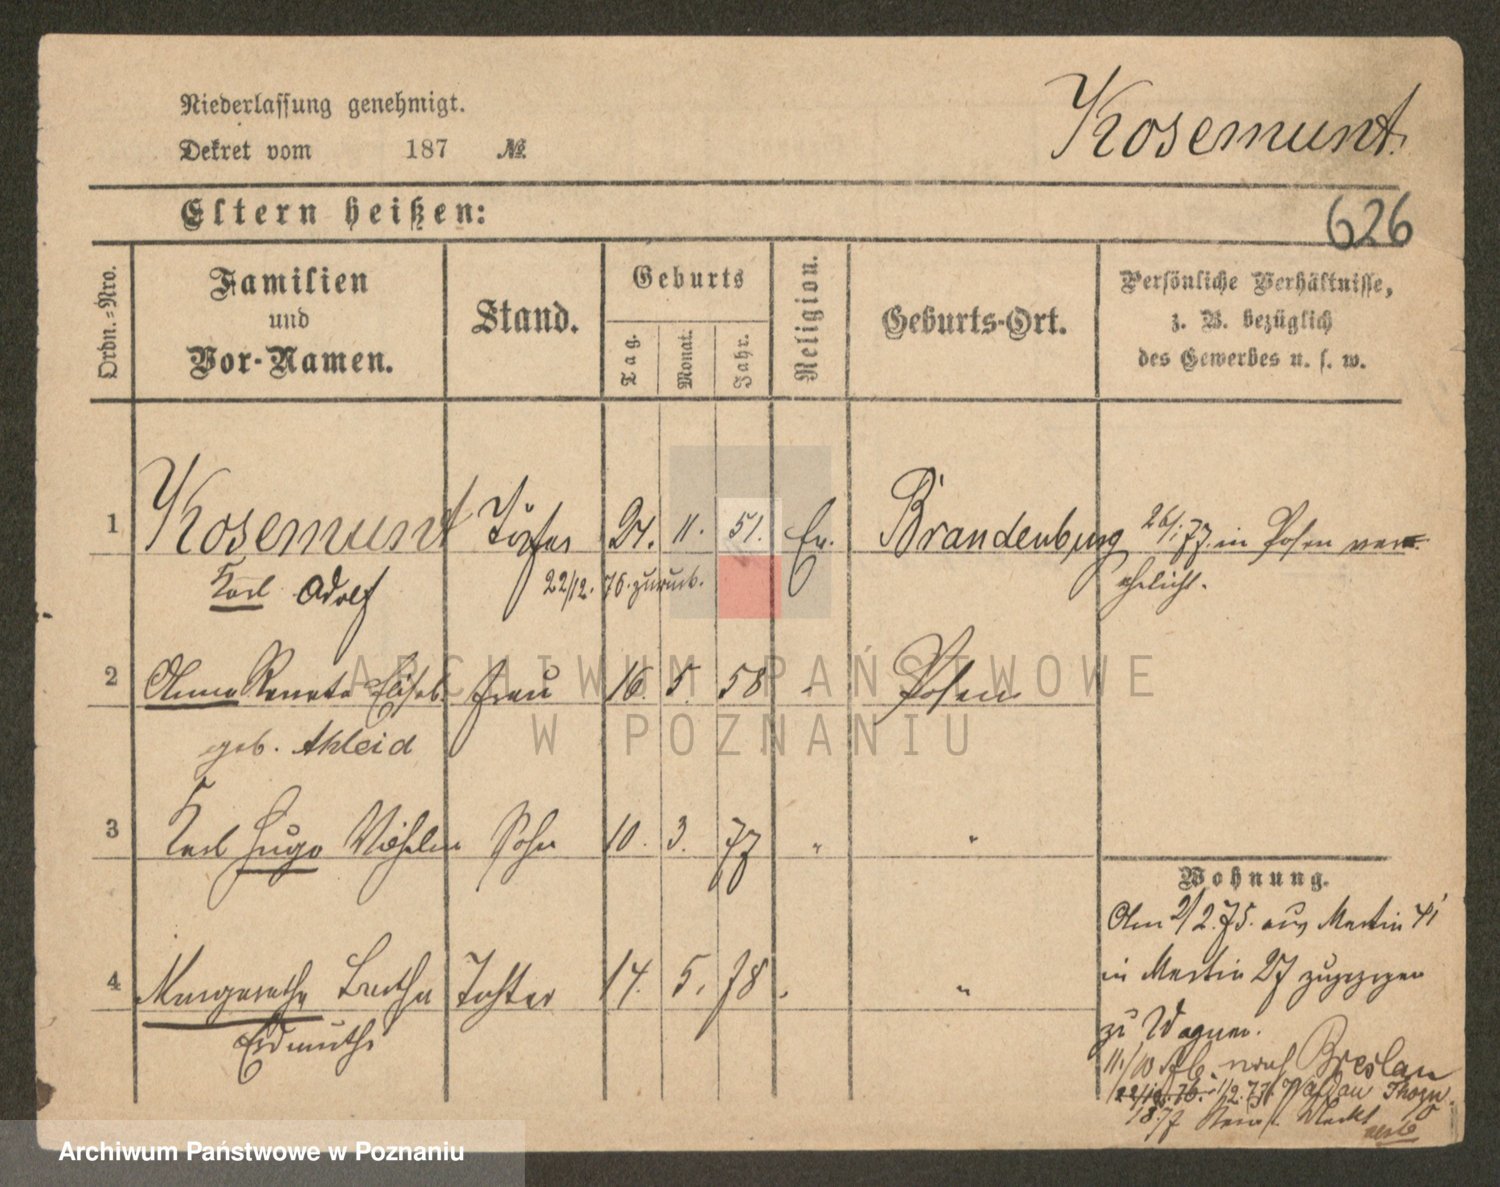 Niederlassung genehmigt.
Dekret vom 187 №
Rosemunt.
Eltern heißen:
626
Ordn.-Nro.
Familien
und
Vor-Namen.
Stand.
Geburts
Tag.
Monat.
Jahr.
Religion.
Geburts-Ort.
Persönliche Verhältnisse,
z. B. bezüglich
des Gewerbes u. s. w.
1 Rosemunt Töpfer 24. 11. 51. Ev. Brandenburg 26/1. 77. in Posen ver=
Karl Adolf 22/12. 76. zurück. ehelicht.
2 Anna Renate Elisab. Frau 16. 5. 58 " Posen
geb. Ahleid
3 Karl Hugo Wilhelm Sohn 10. 3. 77 " "
4 Margarethe Bertha Tochter 14. 5. 78 " "
Erdmuthe
Wohnung.
Am 2/2. 75. aus Martin 41
in Martin 27 zugezogen
zu Wagner.
11./10 nach Breslau
22/12. 76. 1/2. 77. Thorn.
18. 77
ARCHIWUM PAŃSTWOWE
W POZNANIU
Archiwum Państwowe w Poznaniu